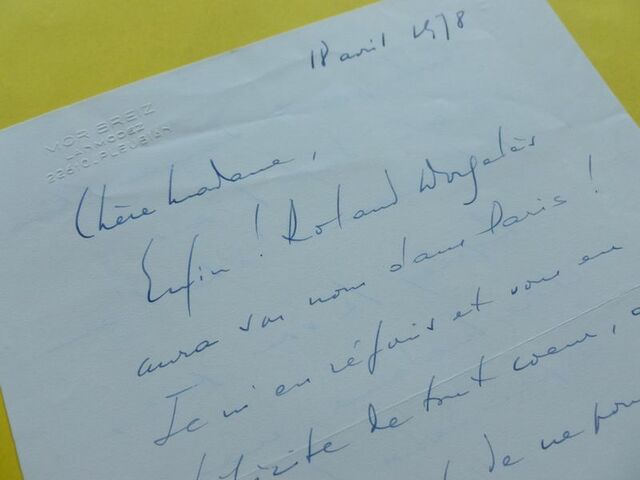 18 avril 1978
MOR BREIZ
LANMODEZ
22610 PLEUBIAN
Chère Madame,
Enfin ! Roland Dorgelès
aura son nom dans Paris !
Je m'en réjouis et vous en
félicite de tout coeur,
de ne pou